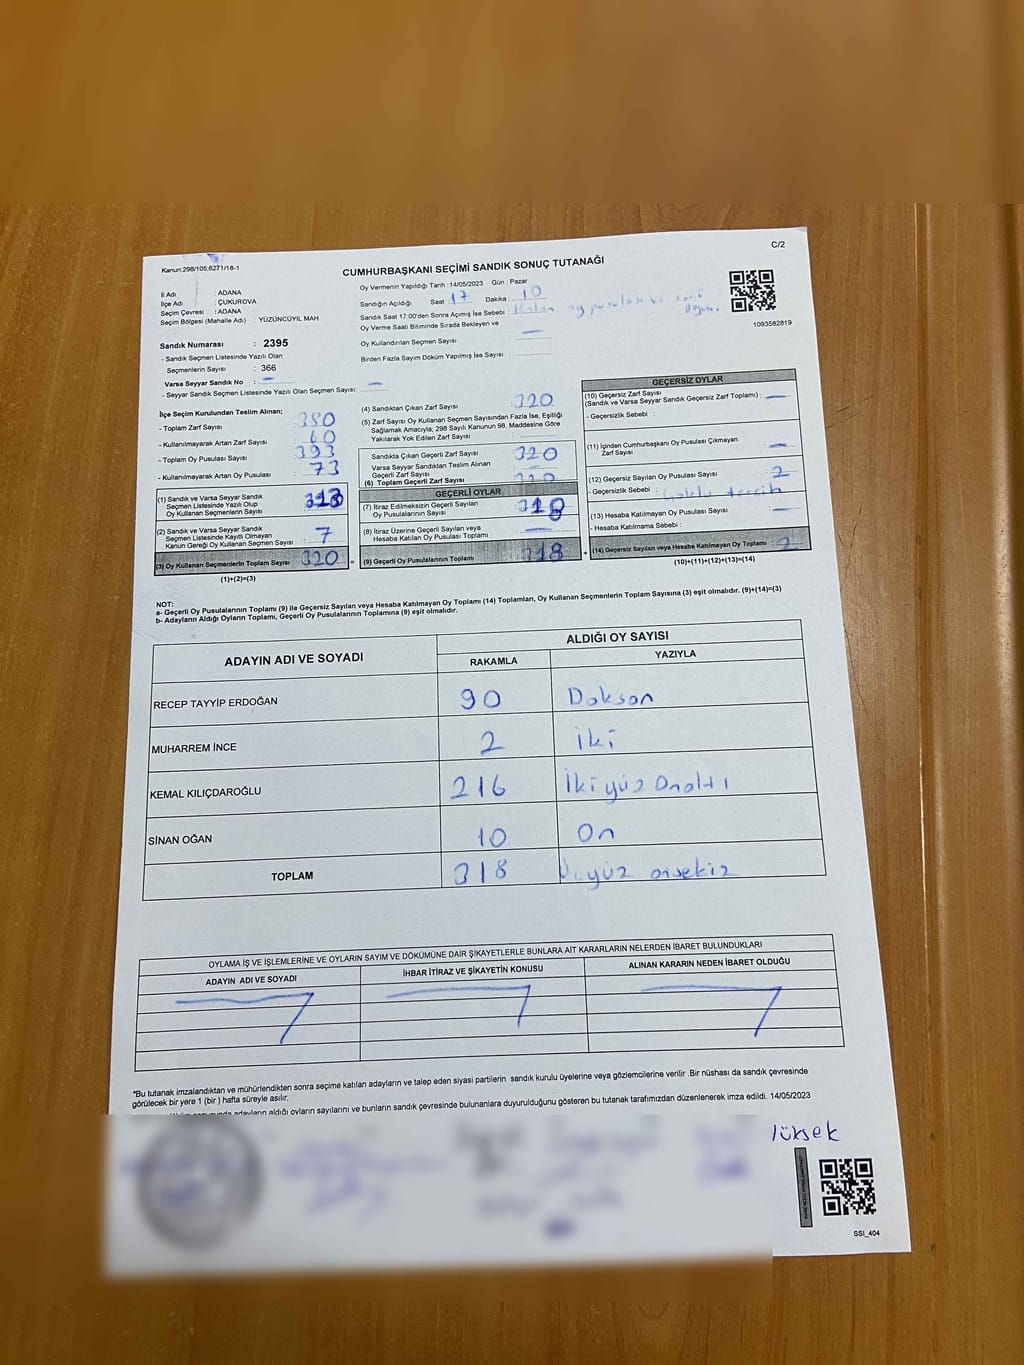 Kanun:298/105,6271/18-1
C/2
CUMHURBAŞKANI SEÇİMİ SANDIK SONUÇ TUTANAĞI
İl Adı : ADANA
İlçe Adı : ÇUKUROVA
Seçim Çevresi : ADANA
Seçim Bölgesi (Mahalle Adı) : YÜZÜNCÜYIL MAH.
Sandık Numarası : 2395
- Sandık Seçmen Listesinde Yazılı Olan
Seçmenlerin Sayısı : 366
Varsa Seyyar Sandık No : —
- Seyyar Sandık Seçmen Listesinde Yazılı Olan Seçmen Sayısı: —
Oy Vermenin Yapıldığı Tarih : 14/05/2023 Gün : Pazar
Sandığın Açıldığı Saat 17 Dakika 10
Sandık Saat 17:00'den Sonra Açımış İse Sebebi : Kalan oy pusulası ve zarf
Oy Verme Saati Bitiminde Sırada Bekleyen ve
Oy Kullandırılan Seçmen Sayısı : —
Birden Fazla Sayım Döküm Yapılmış İse Sayısı :
1093582819
İlçe Seçim Kurulundan Teslim Alınan;
- Toplam Zarf Sayısı : 380
- Kullanılmayarak Artan Zarf Sayısı : 60
- Toplam Oy Pusulası Sayısı : 393
- Kullanılmayarak Artan Oy Pusulası : 73
(1) Sandık ve Varsa Seyyar Sandık
Seçmen Listesinde Yazılı Olup
Oy Kullanan Seçmenlerin Sayısı 313
(2) Sandık ve Varsa Seyyar Sandık
Seçmen Listesinde Kayıtlı Olmayan
Kanun Gereği Oy Kullanan Seçmen Sayısı 7
(3) Oy Kullanan Seçmenlerin Toplam Sayısı 320
(1)+(2)=(3)
(4) Sandıktan Çıkan Zarf Sayısı : 320
(5) Zarf Sayısı Oy Kullanan Seçmen Sayısından Fazla İse, Eşitliği
Sağlamak Amacıyla; 298 Sayılı Kanunun 98. Maddesine Göre
Yakılarak Yok Edilen Zarf Sayısı :
Sandıkla Çıkan Geçerli Zarf Sayısı : 320
Varsa Seyyar Sandıktan Teslim Alınan
Geçerli Zarf Sayısı : —
(6) Toplam Geçerli Zarf Sayısı : 320
GEÇERLİ OYLAR
(7) İtiraz Edilmeksizin Geçerli Sayılan
Oy Pusulalarının Sayısı : 318
(8) İtiraz Üzerine Geçerli Sayılan veya
Hesaba Katılan Oy Pusulası Toplamı : —
(9) Geçerli Oy Pusulalarının Toplamı : 318
GEÇERSİZ OYLAR
(10) Geçersiz Zarf Sayısı
(Sandık ve Varsa Seyyar Sandık Geçersiz Zarf Toplamı) : —
- Geçersizlik Sebebi :
(11) İçinden Cumhurbaşkanı Oy Pusulası Çıkmayan
Zarf Sayısı : —
(12) Geçersiz Sayılan Oy Pusulası Sayısı : 2
- Geçersizlik Sebebi : Çoklu tercih
(13) Hesaba Katılmayan Oy Pusulası Sayısı : —
- Hesaba Katılmama Sebebi :
(14) Geçersiz Sayılan veya Hesaba Katılmayan Oy Toplamı : 2
(10)+(11)+(12)+(13)=(14)
NOT:
a- Geçerli Oy Pusulalarının Toplamı (9) ile Geçersiz Sayılan veya Hesaba Katılmayan Oy Toplamı (14) Toplamları, Oy Kullanan Seçmenlerin Toplam Sayısına (3) eşit olmalıdır. (9)+(14)=(3)
b- Adayların Aldığı Oyların Toplamı, Geçerli Oy Pusulalarının Toplamına (9) eşit olmalıdır.
ADAYIN ADI VE SOYADI
ALDIĞI OY SAYISI
RAKAMLA YAZIYLA
RECEP TAYYİP ERDOĞAN 90 Doksan
MUHARREM İNCE 2 iki
KEMAL KILIÇDAROĞLU 216 İkiyüz Onaltı
SİNAN OĞAN 10 On
TOPLAM 318 Üçyüz onsekiz
OYLAMA İŞ VE İŞLEMLERİNE VE OYLARIN SAYIM VE DÖKÜMÜNE DAİR ŞİKAYETLERLE BUNLARA AİT KARARLARIN NELERDEN İBARET BULUNDUKLARI
ADAYIN ADI VE SOYADI İHBAR İTİRAZ VE ŞİKAYETİN KONUSU ALINAN KARARIN NEDEN İBARET OLDUĞU
*Bu tutanak imzalandıktan ve mühürlendikten sonra seçime katılan adayların ve talep eden siyasi partilerin sandık kurulu üyelerine veya gözlemcilerine verilir .Bir nüshası da sandık çevresinde
görülecek bir yere 1 (bir ) hafta süreyle asılır.
adayların aldığı oyların sayılarını ve bunların sandık çevresinde bulunanlara duyurulduğunu gösteren bu tutanak tarafımızdan düzenlenerek imza edildi. 14/05/2023
SSI_404